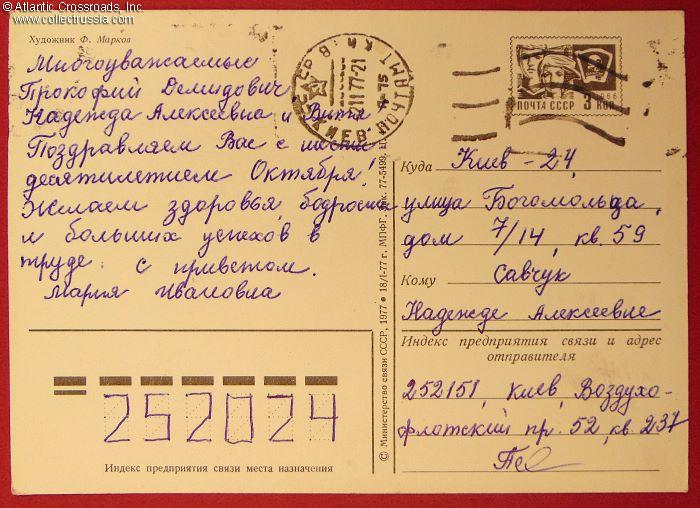 © Atlantic Crossroads, Inc.
www.collectrussia.com
Художник Ф. Марков
Многоуважаемые
Прокофий Демидович
Надежда Алексеевна и Витя
Поздравляем Вас с шести
десятилетием Октября!
Желаем здоровья, бодрости
и больших успехов в
труде. С приветом.
Мария Ивановна
КИЕВ ПОЧТАМТ
21177-21
ПОЧТА СССР 3 КОП
1966
Куда Киев-24,
улица Богомольца,
дом 7/14, кв. 59
Кому Савчук
Надежде Алексеевне
Индекс предприятия связи и адрес
отправителя
252151, Киев, Воздухо-
флотский пр. 52, кв. 237
© Министерство связи СССР, 1977 ● 18/I-77 г. МПФГ. Зак. 77-5499.
252024
Индекс предприятия связи места назначения